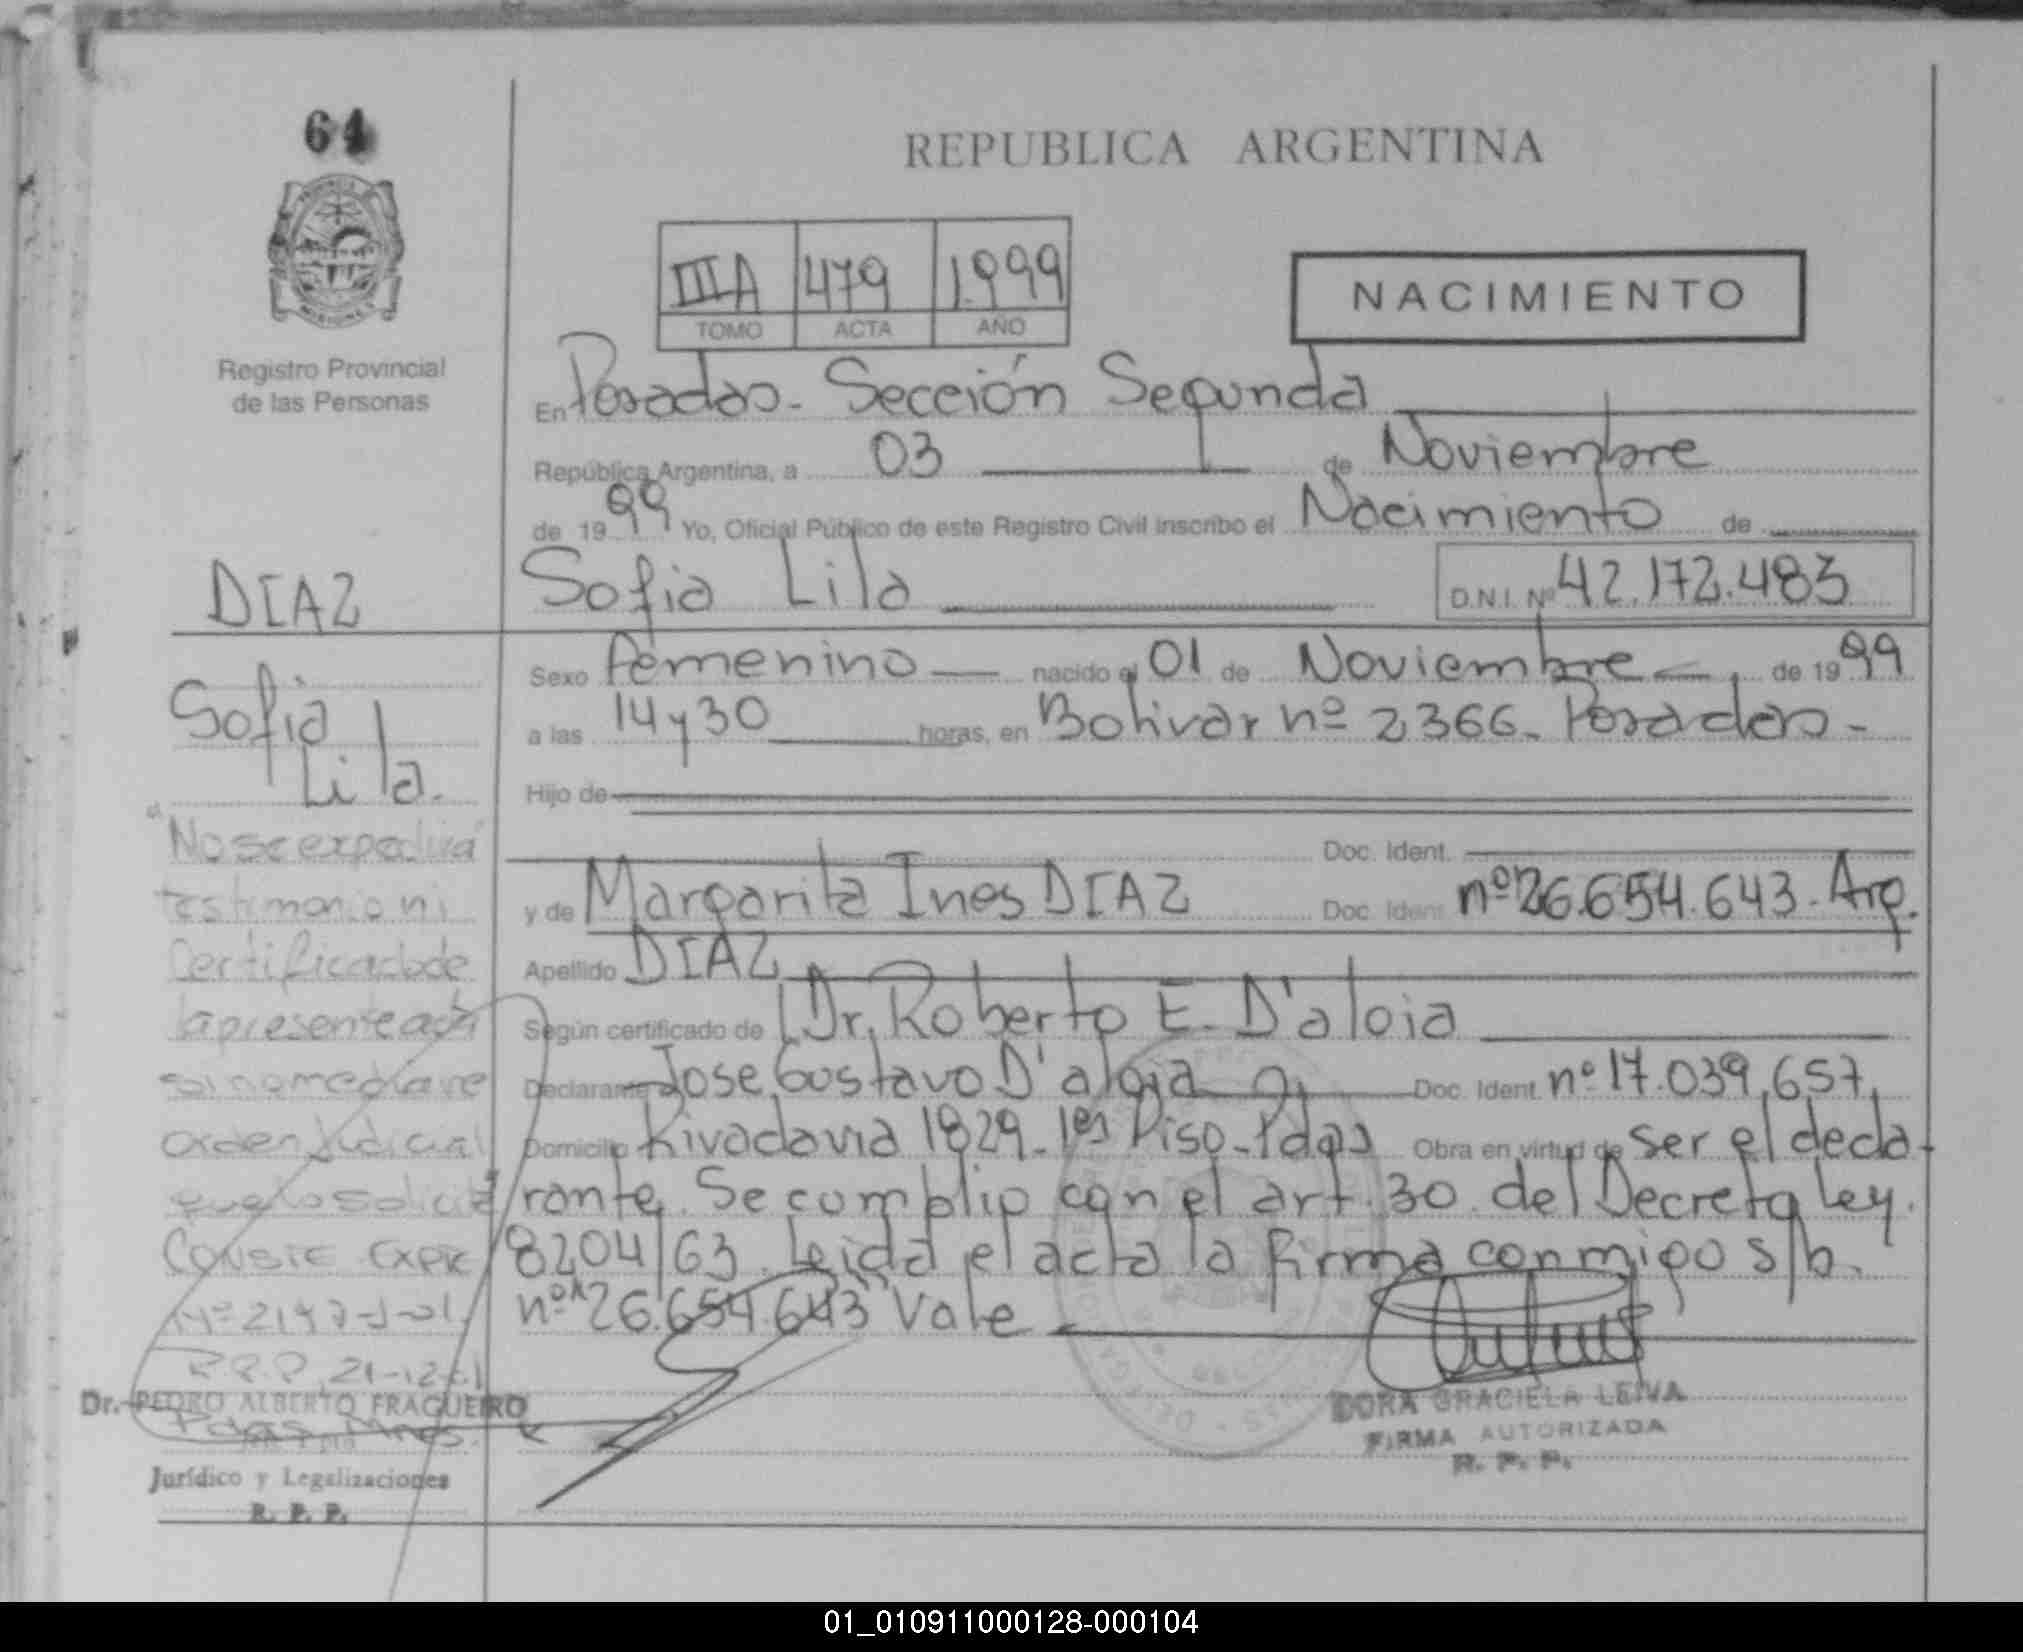 64
REPUBLICA ARGENTINA
III A 479 1.999
TOMO ACTA AÑO
NACIMIENTO
Registro Provincial
de las Personas
En Posadas - Sección Segunda
República Argentina, a 03 de Noviembre
de 1999 Yo, Oficial Público de este Registro Civil inscribo el Nacimiento de
Sofia Lila D.N.I. Nº 42.172.483
Sexo femenino nacido el 01 de Noviembre de 1999
a las 14 y 30 horas, en Bolivar nº 2366 - Posadas -
Hijo de
Doc. Ident.
y de Margarita Ines DIAZ Doc. Ident. nº 26.654.643. Arg.
Apellido DIAZ
Según certificado de Dr. Roberto E. D'aloia
Declarante Jose Gustavo D'aloia Doc. Ident. nº 17.039.657
Domicilio Rivadavia 1829 - 1er Piso - Pdas Obra en virtud de ser el decla-
rante. Se cumplio con el art. 30 del Decreto ley
8204/63. Leida el acta la firma conmigo s/b.
nº "26.654.643" Vale
DIAZ
Sofia
Lila.
"No se expedira
testimonio ni
Certificado de
la presente acta
si no mediare
orden Judicial
que lo solicite"
CONSTE Expte
Nº 2147-J-01
R.P.P. 21-12-01
Dr. PEDRO ALBERTO FRAGUEIRO
Pdas Mnes.
Jurídico y Legalizaciones
R. P. P.
DORA GRACIELA LEIVA
FIRMA AUTORIZADA
R. P. P.
01_010911000128-000104